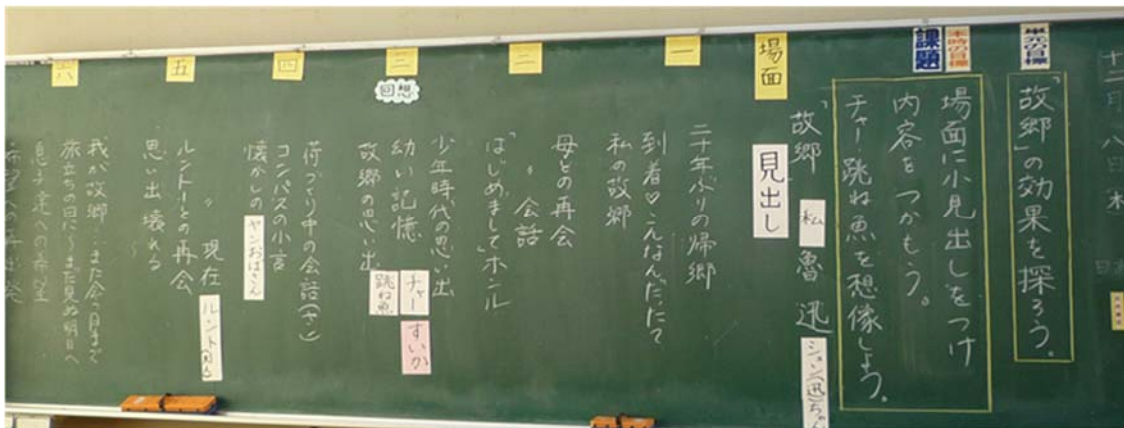 十二月八日 木
単元の目標
「故郷」の効果を探ろう。
本時の目標
課題
場面に小見出しをつけ
内容をつかもう。
チャー跳ね魚を想像しよう。
「故郷」 私 魯迅 シュン(迅)ちゃん
場面 見出し
一
二十年ぶりの帰郷
到着♡こんなんだたて
私の故郷
二
母との再会
〃 会話
「はじめまして」ホンル
三
回想
少年時代の思い出
幼い記憶 チャー すいか
故郷の思い出 跳ね魚
四
荷づくり中の会話(ヤン)
コンパスの小言
懐かしの ヤンおばさん
五
〃 現在 ルントー
ルントーとの再会
思い出壊れる
六
我が故郷…また会う日まで
旅立ちの日に～まだ見ぬ明日へ
息子達への希望
希望への再出発